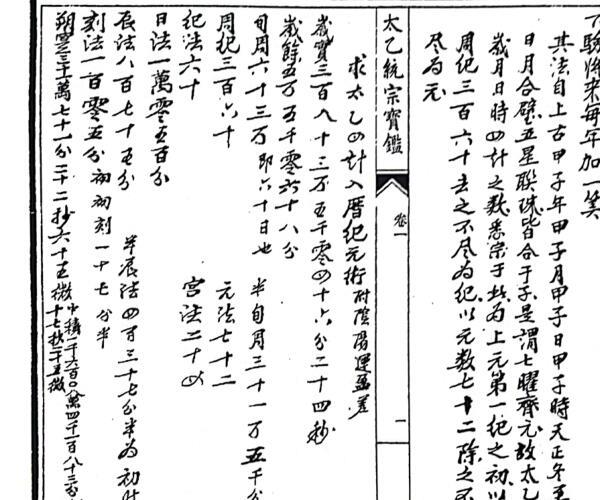 下驗將來每年加一筭
其法自上古甲子年甲子月甲子日甲子時天正冬至
日月合璧五星聯珠皆合于子是謂七曜齊元故太乙
歲月日時四計之数悉宗于此為上元第一紀之初以
周紀三百六十去之不尽為紀以元数七十二除之不
尽為元
太乙統宗寶鑑
卷一
一
求太乙四計入曆紀元術附陰陽運盈差
歲實三百八十三万五千零四十六分二十四秒
歲餘五万五千零六十八分
旬周六十三万即六十日也 半旬周三十一万五千分
周紀三百六十 元法七十二
紀法六十 宫法二十四
日法一萬零五百分
辰法八百七十五分 半辰法四百三十七分半為初時
刻法一百零五分 初初刻一十七分半
朔實三十萬七十一分二十二抄六十五微 中積一千六百〇八萬四千一百八十三分
十七抄二十五微